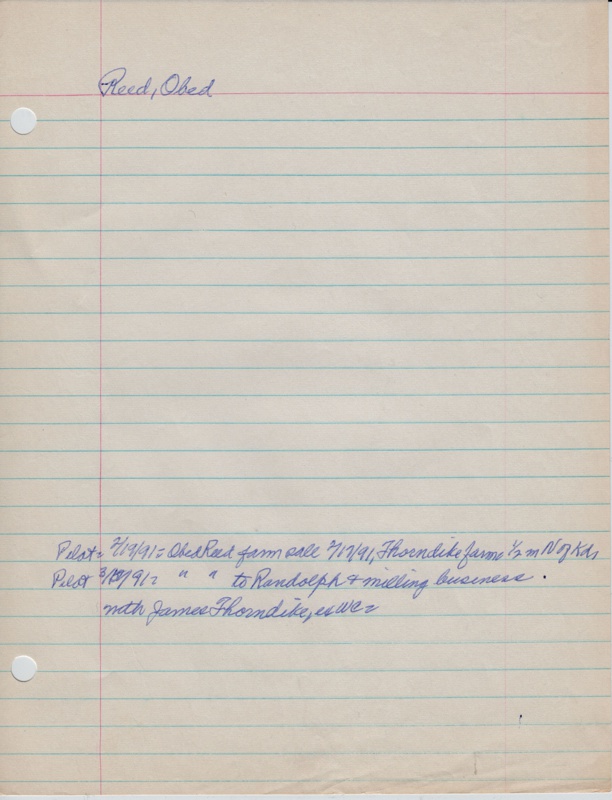 Reed, Obed
Pilot = 2/19/91 = Obed Reed farm sale 2/17/91, Thorndike farm 1/2 m N of
Pilot 3/ /91 = " " to Randolph & milling business.
with James Thorndike,